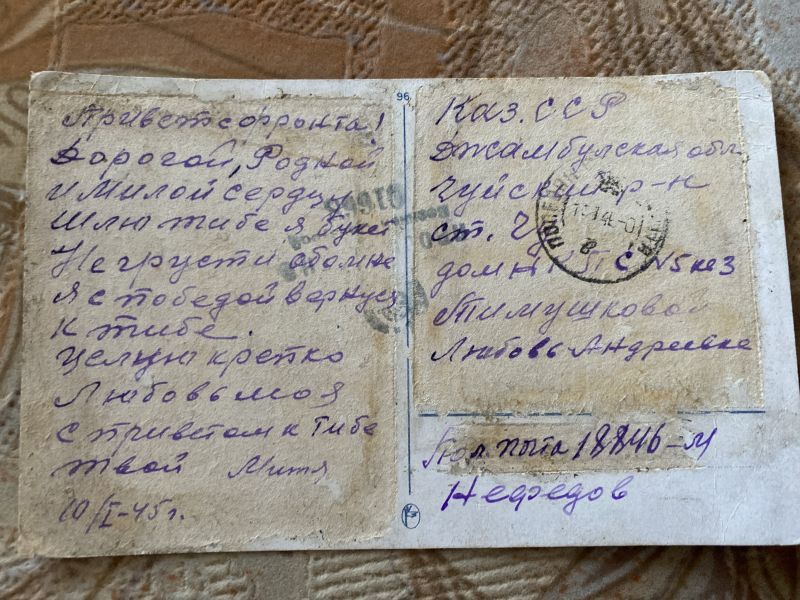 Привет с фронта!
Дорогой, Родной
и Милой сердцу
Шлю тибе я букет
Не грусти обомне
Я с победой вернусь
К тибе.
Целую крепко
Любовь моя
С приветом к тибе
твой Митя
10/I-45 г.
96
Каз. ССР
Джамбулская обл
Чуйский р-н
ст. Чу
дом НКПС №5 кв 3
Тимушковой
Любовь Андреевне
Пол. почта 18846-М
Нефедов